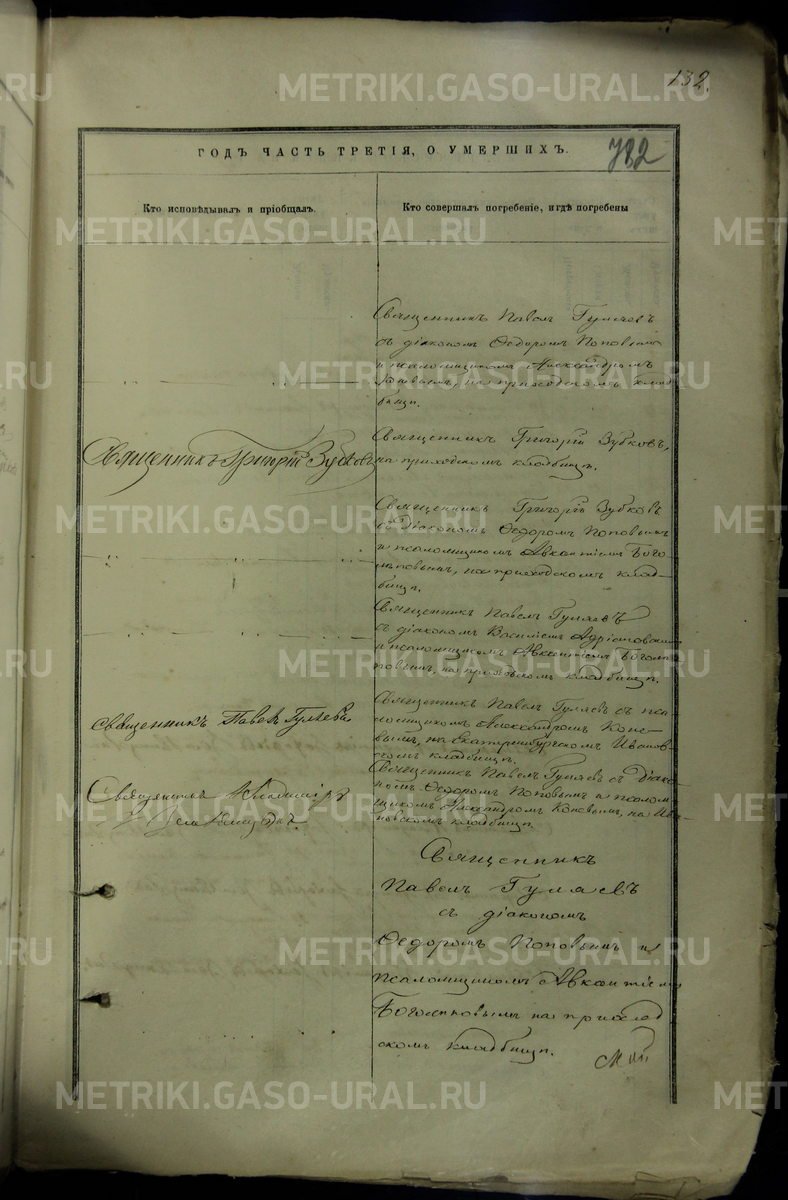 132.
ГОДЪ ЧАСТЬ ТРЕТІЯ, О УМЕРШИХЪ.
782
Кто исповѣдывалъ и пріобщалъ.
Кто совершалъ погребеніе, и гдѣ погребены
Священникъ Павелъ Гуляевъ
съ діакономъ Ѳедоромъ Поповымъ
и псаломщикомъ Александромъ
на приходскомъ клад-
бищѣ.
Священникъ Григорій Зубковъ
Священникъ Григорій Зубковъ,
на приходскомъ кладбищѣ.
Священникъ Григорій Зубковъ
съ Діакономъ Ѳедоромъ Поповымъ
и псаломщикомъ Авксентіемъ Бого-
на приходскомъ клад-
бищѣ.
Священникъ Павелъ Гуляевъ
съ діакономъ Василіемъ
и псаломщикомъ Авксентіемъ
на приходскомъ кладбищѣ.
Священникъ Павелъ Гуляевъ
Священникъ Павелъ Гуляевъ съ пса-
ломщикомъ Александромъ Коне-
вымъ, на Екатеринбургскомъ Иванов-
скомъ кладбищѣ.
Священникъ Владиміръ
Священникъ Павелъ Гуляевъ съ Діако-
номъ Ѳедоромъ Поповымъ и псалом-
щикомъ Александромъ Коневымъ, на Ива-
новскомъ кладбищѣ.
Священникъ
Павелъ Гуляевъ
съ діакономъ
Ѳедоромъ Поповымъ и
псаломщикомъ Авксентіемъ
на приход
скомъ кладбищѣ.
METRIKI.GASO-URAL.RU